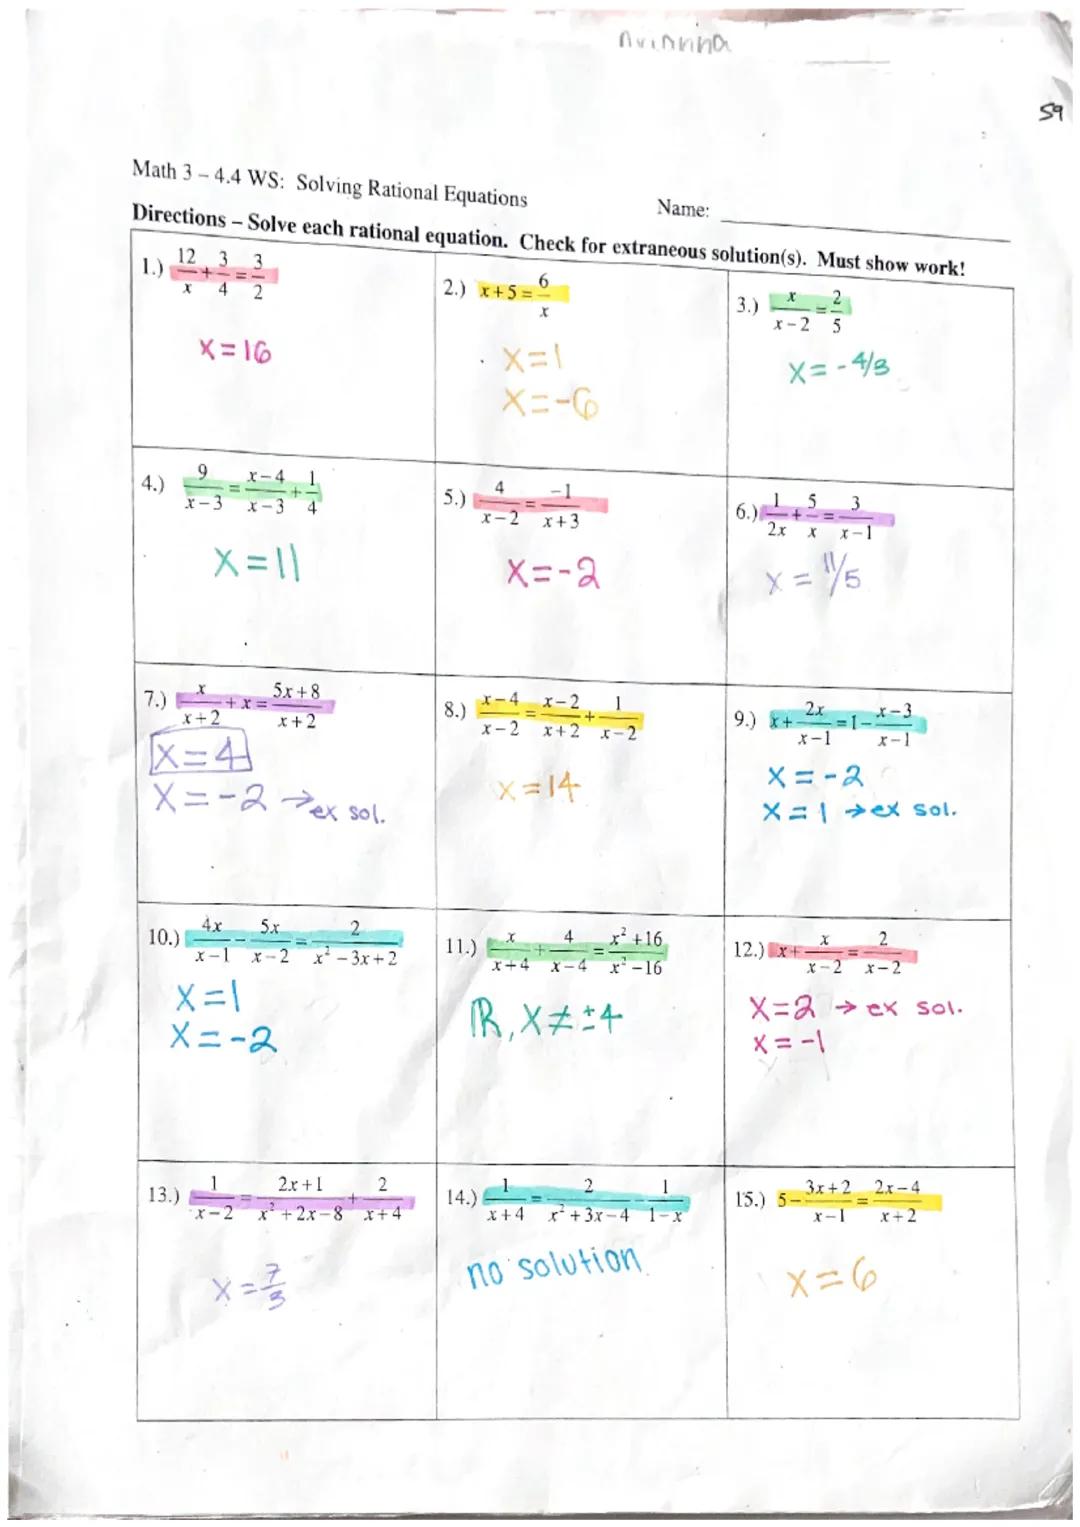 Arianna
59
Math 3 – 4.4 WS: Solving Rational Equations
Name:
Directions – Solve each rational equation. Check for extraneous solution(s). Must show work!
1.) 12/x + 3/4 = 3/2
x = 16
2.) x + 5 = 6/x
x = 1
x = -6
3.) x/(x-2) = 2/5
x = -4/3
4.) 9/(x-3) = (x-4)/(x-3) + 1/4
x = 11
5.) 4/(x-2) = -1/(x+3)
x = -2
6.) 1/2x + 5/x = 3/(x-1)
x = 11/5
7.) x/(x+2) + x = (5x+8)/(x+2)
x = 4
x = -2 → ex sol.
8.) (x-4)/(x-2) = (x-2)/(x+2) + 1/(x-2)
x = 14
9.) x + 2x/(x-1) = 1 - (x-3)/(x-1)
x = -2
x = 1 → ex sol.
10.) 4x/(x-1) - 5x/(x-2) = 2/(x²-3x+2)
x = 1
x = -2
11.) x/(x+4) + 4/(x-4) = (x²+16)/(x²-16)
ℝ, x ≠ ±4
12.) x + x/(x-2) = 2/(x-2)
x = 2 → ex sol.
x = -1
13.) 1/(x-2) = (2x+1)/(x²+2x-8) + 2/(x+4)
x = 7/3
14.) 1/(x+4) = 2/(x²+3x-4) - 1/(1-x)
no solution
15.) 5 - (3x+2)/(x-1) = (2x-4)/(x+2)
x = 6